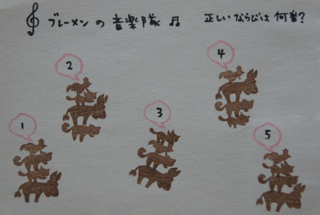 ブレーメンの音楽隊♬ 正しいならびは何番?
2
4
3
1
5